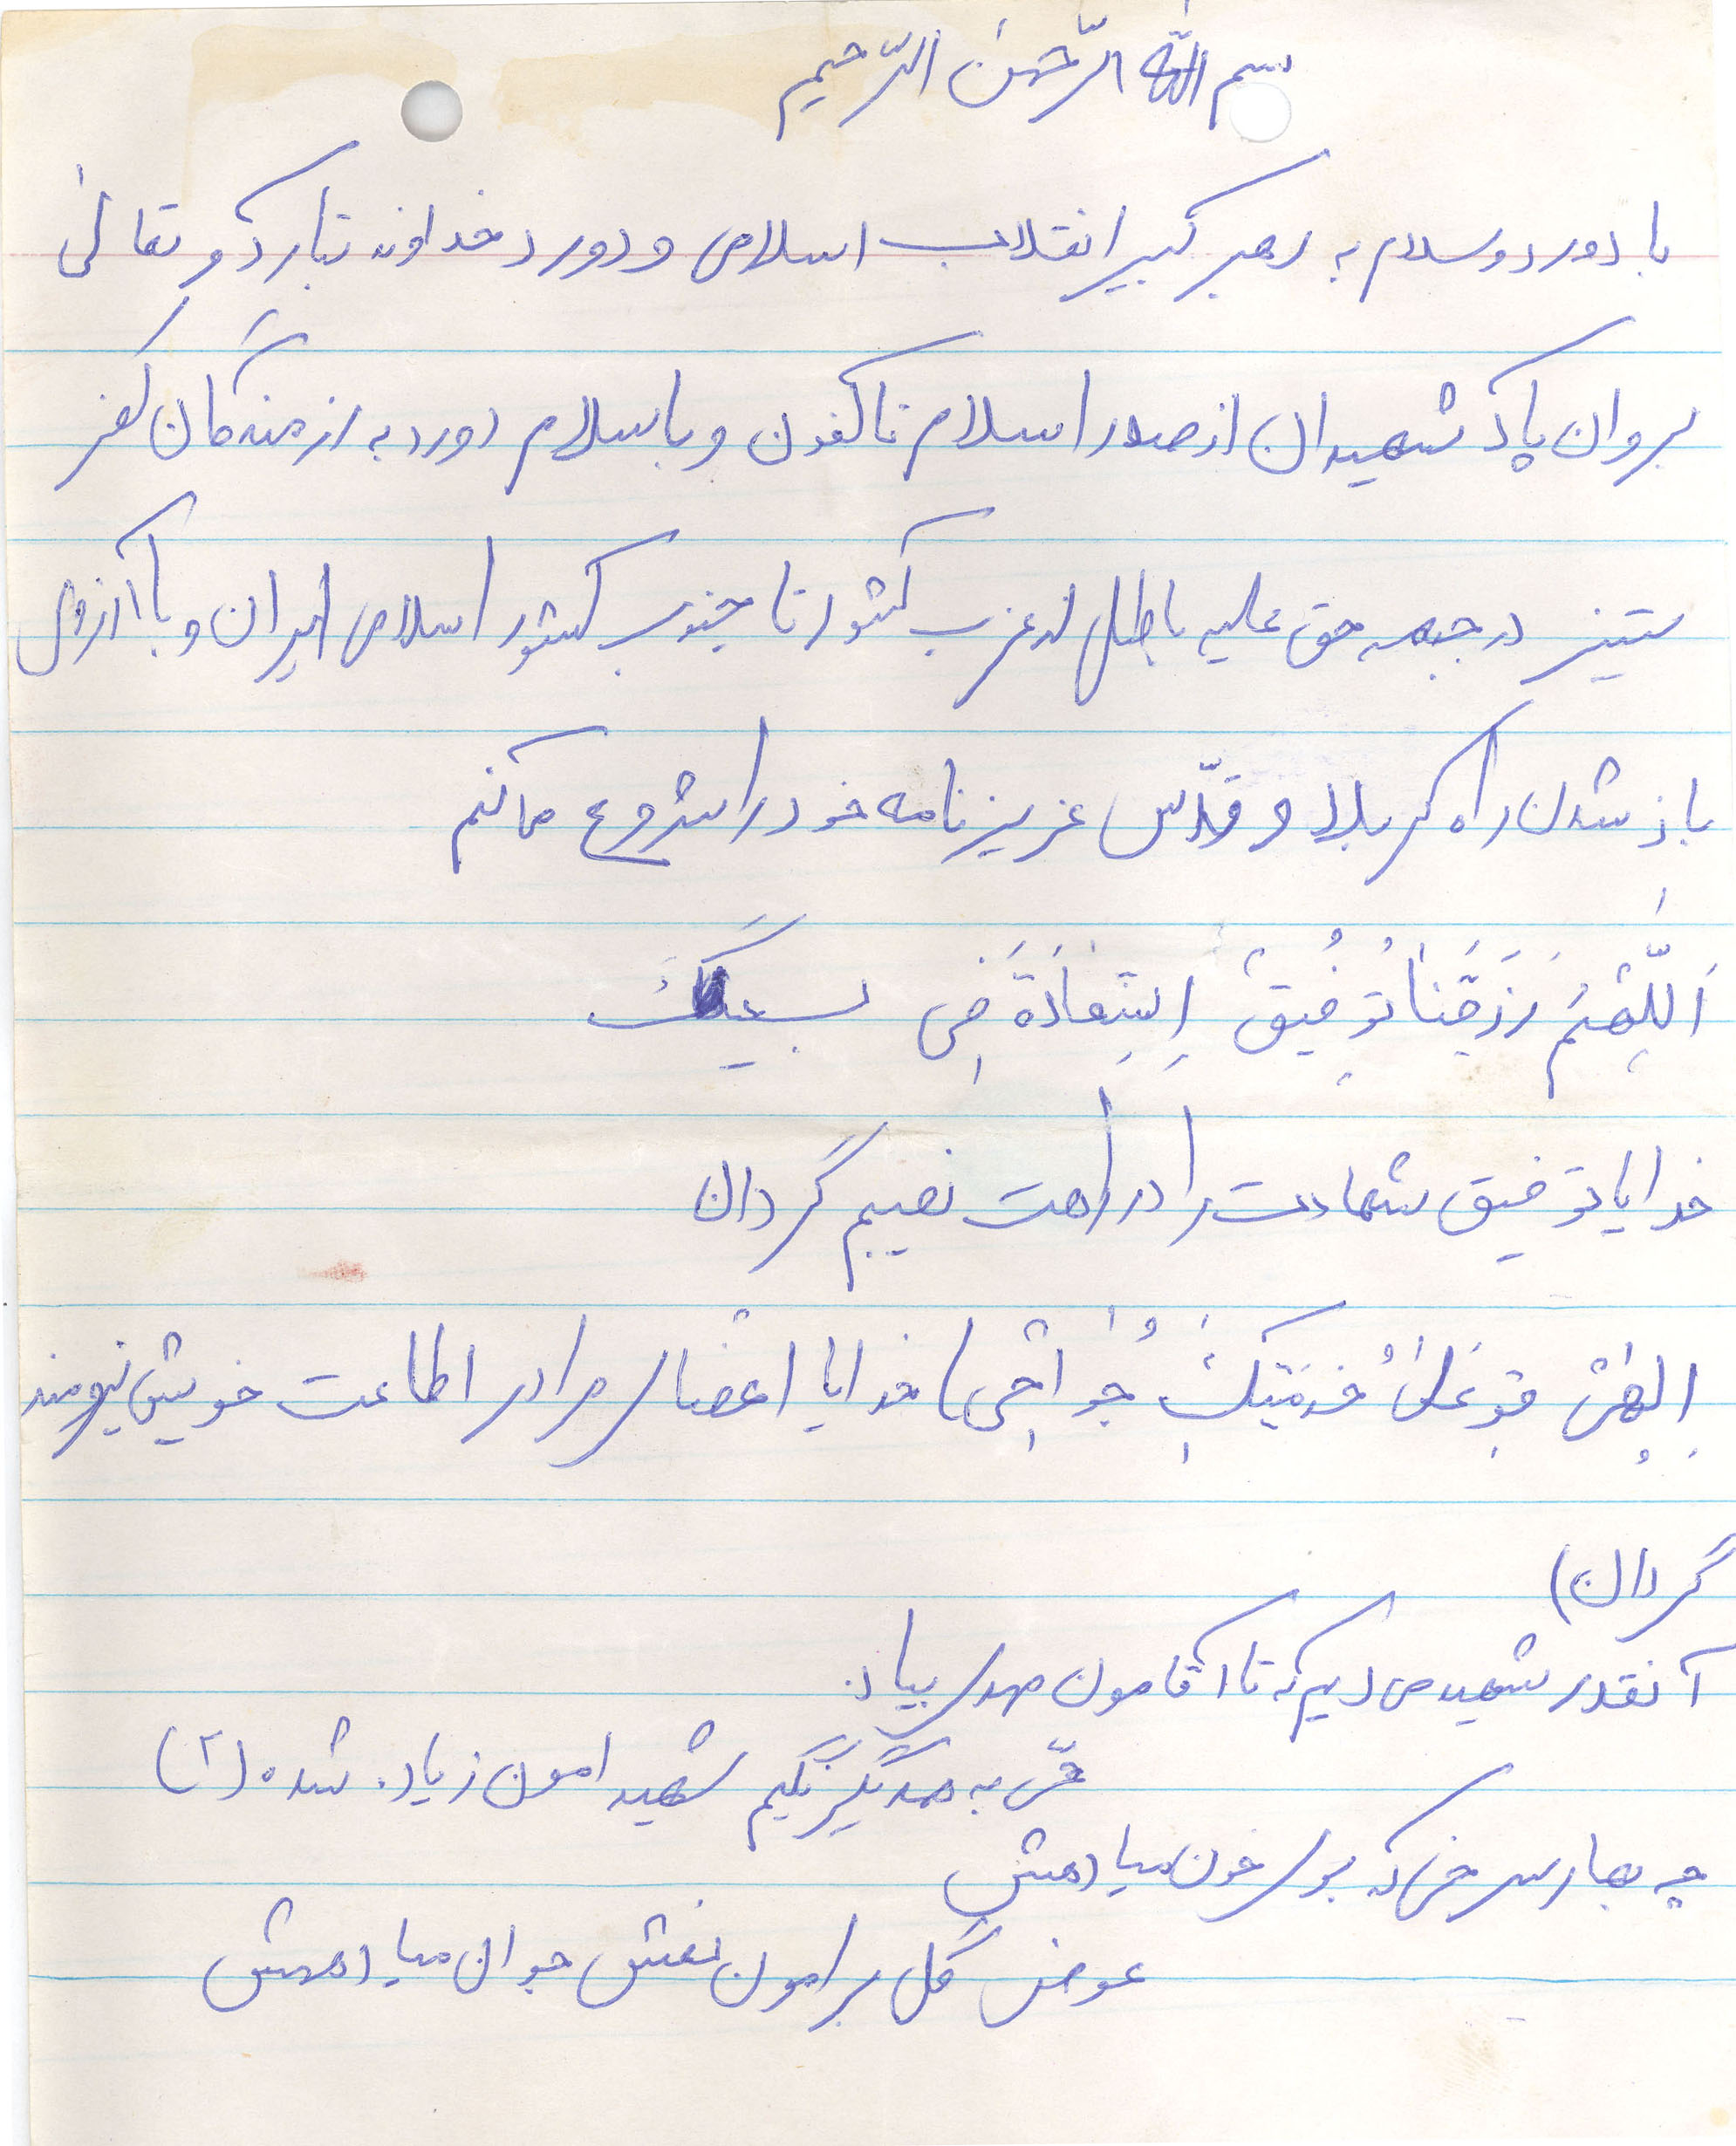 بسم الله الرّحمن الرّحیم
با دورد و سلام به رهبر کبیر انقلاب اسلامی و دورد خداوند تبارک و تعالیٰ
بروان پاک شهیدان از صدر اسلام تا کنون و با سلام دورد به رزمندگان کفر
ستیز در جبهه حق علیه باطل از غرب کشور تا جنوب کشور اسلامی ایران و با آرزوی
باز شدن راه کربلا و قدّس عزیز نامه خود را شروع میکنم
اَللّهُمَ رَزَقَنا تُوفِیقْ اِسْتِعادَةَ فِی
خدایا توفیق شهادت را در راهت نصیبم گردان
اِلهِیْ قوِ عَلیٰ خُدمَتِکَ جُوارِحی) خدایا اعضای مرا در اطاعت خویش نیرومند
گردان)
آنقدر شهید می دیم که تا آقامون مهدی بیاد.
حتّی به همدیگر نگیم شهیدامون زیاد شده (۲)
چه بهار سرخی که بوی خون میاد همش
عوض گل برامون نعش جوان میاد همش